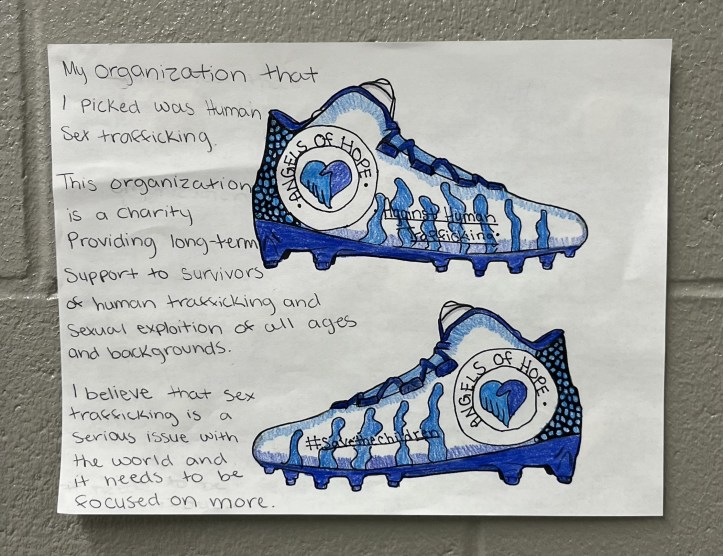 My organization that
I picked was Human
Sex trafficking.
This organization
is a charity
Providing long-term
Support to survivors
of human trafficking and
sexual exploition of all ages
and backgrounds.
I believe that sex
trafficking is a
serious issue with
the world and
it needs to be
focused on more.
• ANGELS OF HOPE •
Against Human
Trafficking.
ANGELS OF HOPE •
#Savethechildren